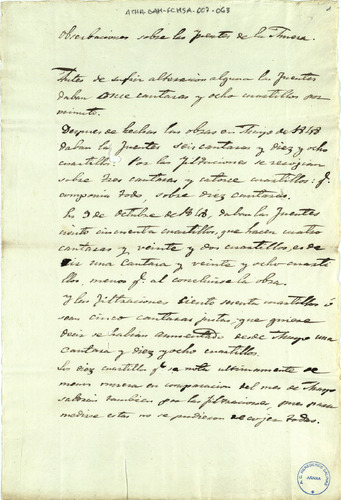 ATHA-DAH-FCMSA-007-063
Observaciones sobre las fuentes de la
Antes de sufrir alteracion alguna las fuentes
daban once cantaras y ocho cuartillos por
minuto.
Despues de hechas las obras en Mayo de 1848
daban las fuentes seis cantaras y diez y ocho
cuartillos: Por las filtraciones se recogian
sobre tres cantaras y catorce cuartillos: q.
componia todo, sobre diez cantaras.
En 9 de Octubre de 1848, daban las fuentes
ciento cincuenta cuartillos, que hacen cuatro
cantaras y veinte y dos cuartillos, es de
cir una cantara y veinte y ocho cuarti
llos, menos q. al concluirse la obra.
Y las filtraciones ciento sesenta cuartillos ó
sean cinco cantaras justas, que quiere
decir se habian aumentado desde Mayo una
cantara y diez y ocho cuartillos.
Los diez cuartillos q. se nota ultimamente de
menos en comparacion del mes de Mayo
saldrian tambien por las filtraciones, pues para
medirse estas no se pudieron recojer todas.
A.C. MENDIZORROTZ
ATHA